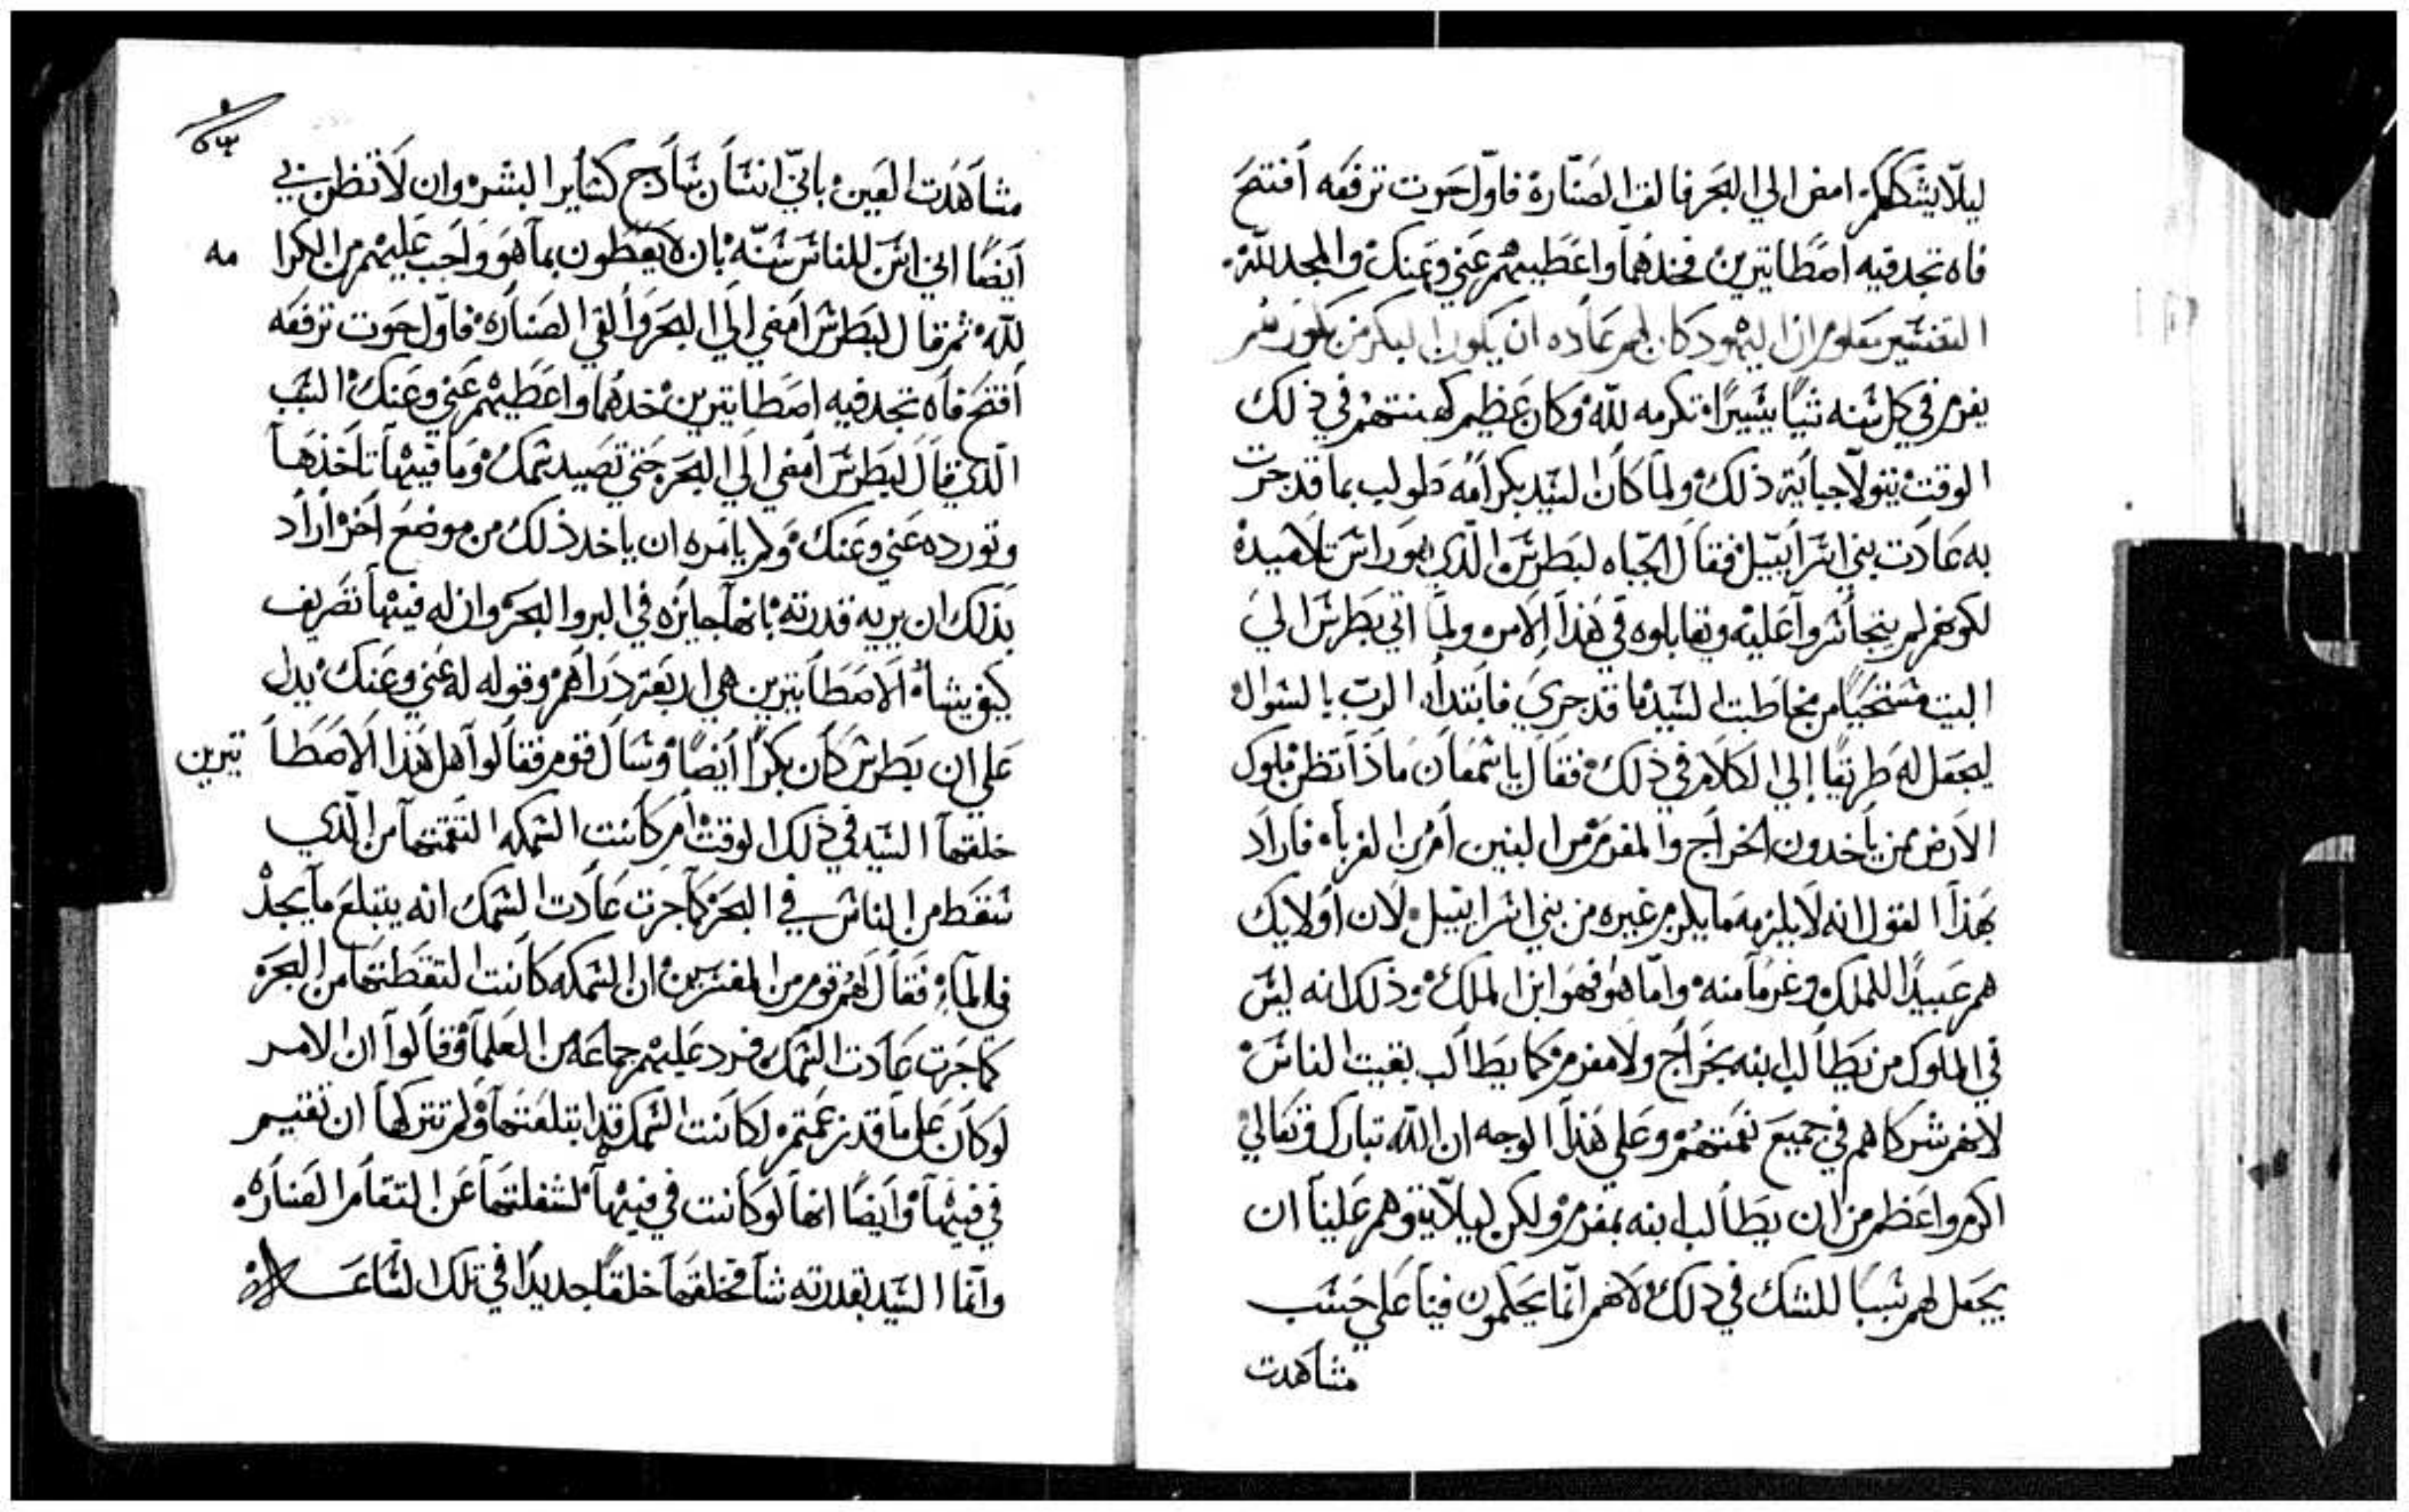 ليلا يشككهم امض الي البحر فالق الصنارة فاول حوت ترفعه افتح
فاه تجد فيه اصطاتيرين فخدهما واعطيهم عني وعنك والمجد لله
التفسير معلوم ان اليهود كان لهم عاده ان يكون البكر من بكورهم
يغرم في كل سنه شيا يسيرا تكرمه لله وكان عظيم كهنتهم في ذلك
الوقت يتولا جباية ذلك ولما كان السيد بكر امه طولب بما قد جرت
به عادت بني اسراييل فقال الجباه لبطرس الذي هو راس تلاميده
لكونهم لم يتجاسروا عليه ويقابلوه في هذا الامر ولما اتي بطرس الي
البيت مستحيا من مخاطبت السيد ما قد جري فابتدا الرب بالسوال
ليجعل له طريقا الي الكلام في ذلك فقال يا سمعان ماذا تظن ملوك
الارض ممن ياخدون الخراج والمغرم من البنين ام من الغرباء فاراد
بهذا القول انه لا يلزمه ما يلزم غيره من بني اسراييل لان اولايك
هم عبيدا للملك وغرما منه واما هو فهو ابن الملك وذلك انه ليس
في الملوك من يطالب ابنه بخراج ولا مغرم كما يطالب بقيت الناس
لانهم شركاهم في جميع نعمتهم وعلي هذا الوجه ان الله تبارك وتعالي
اكرم واعظم من ان يطالب ابنه بمغرم ولكن ليلا يتوهم علينا ان
يجعل لهم سببا للشك في ذلك لانهم انما يحكمون فينا علي حسب
مشاهدت
مشاهدت العين باني انسان سادج كساير البشر وان لا تظن بي
ايضا اني اسن للناس سنه بان لا يعطون بما هو واجب عليهم من الكرا مه
لله ثم قال لبطرس امضي الي البحر والقي الصنارة فاول حوت ترفعه
افتح فاه تجد فيه اصطاتيرين خدهما واعطيهم عني وعنك السبب
الذي قال لبطرس امضي الي البحر حتي تصيد سمك وما فيها تاخذها
وتورده عني وعنك ولم يامره ان ياخد ذلك من موضع اخر اراد
بذلك ان يريه قدرته بانها جايزه في البر والبحر وان له فيها تصريف
كيف يشاء الاصطاتيرين هي اربعة دراهم وقوله له عني وعنك يدل
علي ان بطرس كان بكرا ايضا وسال قوم فقالوا هل هذا الاصطا تيرين
خلقها السيد في ذلك الوقت ام كانت السمكه التقمتها من الذي
سقط من الناس في البحر كما جرت عادت السمك انه يبتلع ما يجد
في الماء فقال لهم قوم من المفسرين ان السمكه كانت التقطتها من البحر
كما جرت عادت السمك فرد عليهم جماعه من العلما وقالوا ان الامر
لو كان علي ما قد زعمتم لكانت السمكه قد ابتلعتها ولم تتركها ان تقيم
في فيها وايضا انها لو كانت في فيها لشغلتها عن التقام الصناره
وانما السيد بقدرته شا فخلقها خلقا جديدا في تلك الساعه لانه